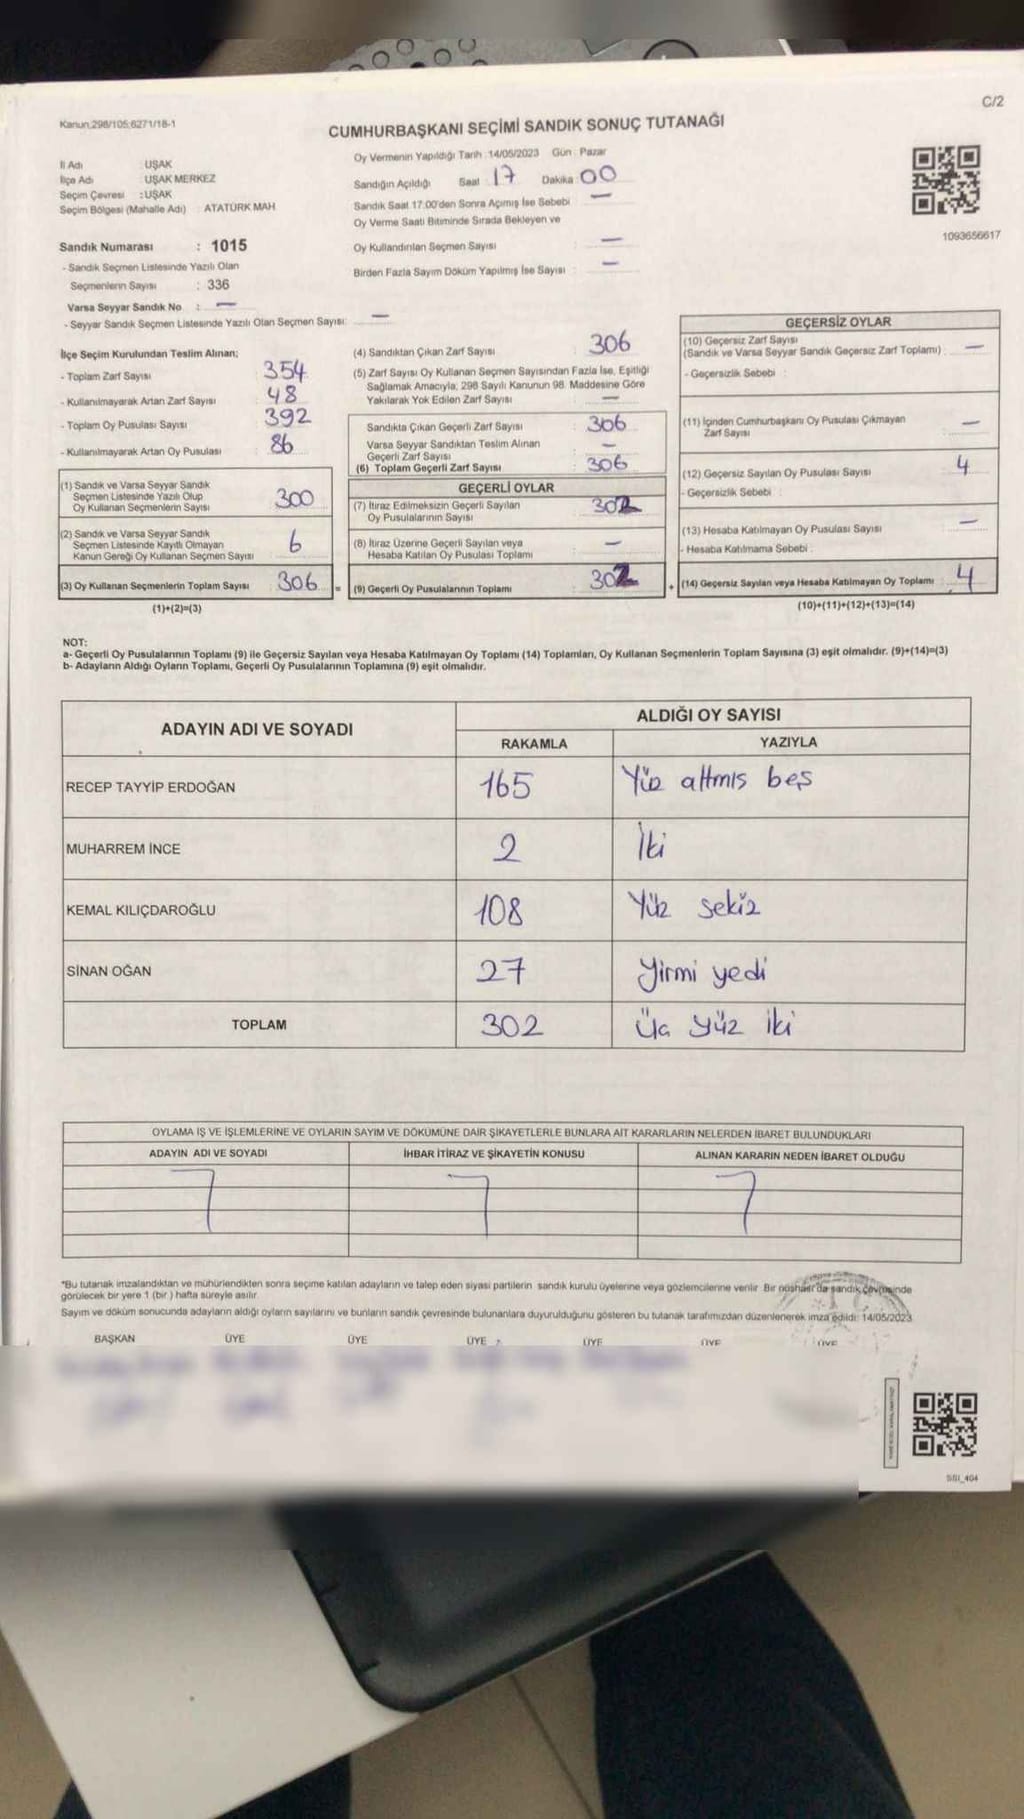 C/2
Kanun:298/105;6271/18-1
CUMHURBAŞKANI SEÇİMİ SANDIK SONUÇ TUTANAĞI
İl Adı : UŞAK
İlçe Adı : UŞAK MERKEZ
Seçim Çevresi : UŞAK
Seçim Bölgesi (Mahalle Adı) : ATATÜRK MAH.
Oy Vermenin Yapıldığı Tarih :14/05/2023 Gün : Pazar
Sandığın Açıldığı Saat : 17 Dakika : 00
Sandık Saat 17:00'den Sonra Açımış İse Sebebi : —
Oy Verme Saati Bitiminde Sırada Bekleyen ve
Oy Kullandırılan Seçmen Sayısı : —
Birden Fazla Sayım Döküm Yapılmış İse Sayısı : —
1093656617
Sandık Numarası : 1015
- Sandık Seçmen Listesinde Yazılı Olan
Seçmenlerin Sayısı : 336
Varsa Seyyar Sandık No : —
- Seyyar Sandık Seçmen Listesinde Yazılı Olan Seçmen Sayısı: —
İlçe Seçim Kurulundan Teslim Alınan;
- Toplam Zarf Sayısı 354
- Kullanılmayarak Artan Zarf Sayısı 48
- Toplam Oy Pusulası Sayısı 392
- Kullanılmayarak Artan Oy Pusulası 86
(1) Sandık ve Varsa Seyyar Sandık
Seçmen Listesinde Yazılı Olup
Oy Kullanan Seçmenlerin Sayısı 300
(2) Sandık ve Varsa Seyyar Sandık
Seçmen Listesinde Kayıtlı Olmayan
Kanun Gereği Oy Kullanan Seçmen Sayısı 6
(3) Oy Kullanan Seçmenlerin Toplam Sayısı 306 =
(1)+(2)=(3)
(4) Sandıktan Çıkan Zarf Sayısı : 306
(5) Zarf Sayısı Oy Kullanan Seçmen Sayısından Fazla İse, Eşitliği
Sağlamak Amacıyla; 298 Sayılı Kanunun 98. Maddesine Göre
Yakılarak Yok Edilen Zarf Sayısı : —
Sandıkta Çıkan Geçerli Zarf Sayısı : 306
Varsa Seyyar Sandıktan Teslim Alınan
Geçerli Zarf Sayısı : —
(6) Toplam Geçerli Zarf Sayısı : 306
GEÇERLİ OYLAR
(7) İtiraz Edilmeksizin Geçerli Sayılan
Oy Pusulalarının Sayısı : 302
(8) İtiraz Üzerine Geçerli Sayılan veya
Hesaba Katılan Oy Pusulası Toplamı : —
(9) Geçerli Oy Pusulalarının Toplamı : 302 +
GEÇERSİZ OYLAR
(10) Geçersiz Zarf Sayısı
(Sandık ve Varsa Seyyar Sandık Geçersiz Zarf Toplamı) : —
- Geçersizlik Sebebi :
(11) İçinden Cumhurbaşkanı Oy Pusulası Çıkmayan
Zarf Sayısı : —
(12) Geçersiz Sayılan Oy Pusulası Sayısı : 4
- Geçersizlik Sebebi :
(13) Hesaba Katılmayan Oy Pusulası Sayısı : —
- Hesaba Katılmama Sebebi :
(14) Geçersiz Sayılan veya Hesaba Katılmayan Oy Toplamı : 4
(10)+(11)+(12)+(13)=(14)
NOT:
a- Geçerli Oy Pusulalarının Toplamı (9) ile Geçersiz Sayılan veya Hesaba Katılmayan Oy Toplamı (14) Toplamları, Oy Kullanan Seçmenlerin Toplam Sayısına (3) eşit olmalıdır. (9)+(14)=(3)
b- Adayların Aldığı Oyların Toplamı, Geçerli Oy Pusulalarının Toplamına (9) eşit olmalıdır.
ADAYIN ADI VE SOYADI ALDIĞI OY SAYISI
RAKAMLA YAZIYLA
RECEP TAYYİP ERDOĞAN 165 Yüz altmıs beş
MUHARREM İNCE 2 İki
KEMAL KILIÇDAROĞLU 108 Yüz sekiz
SİNAN OĞAN 27 Yirmi yedi
TOPLAM 302 Üç yüz iki
OYLAMA İŞ VE İŞLEMLERİNE VE OYLARIN SAYIM VE DÖKÜMÜNE DAİR ŞİKAYETLERLE BUNLARA AİT KARARLARIN NELERDEN İBARET BULUNDUKLARI
ADAYIN ADI VE SOYADI İHBAR İTİRAZ VE ŞİKAYETİN KONUSU ALINAN KARARIN NEDEN İBARET OLDUĞU
*Bu tutanak imzalandıktan ve mühürlendikten sonra seçime katılan adayların ve talep eden siyasi partilerin sandık kurulu üyelerine veya gözlemcilerine verilir. Bir nüshası da sandık çevresinde
görülecek bir yere 1 (bir ) hafta süreyle asılır.
Sayım ve döküm sonucunda adayların aldığı oyların sayılarını ve bunların sandık çevresinde bulunanlara duyurulduğunu gösteren bu tutanak tarafımızdan düzenlenerek imza edildi. 14/05/2023
BAŞKAN ÜYE ÜYE ÜYE ÜYE ÜYE ÜYE